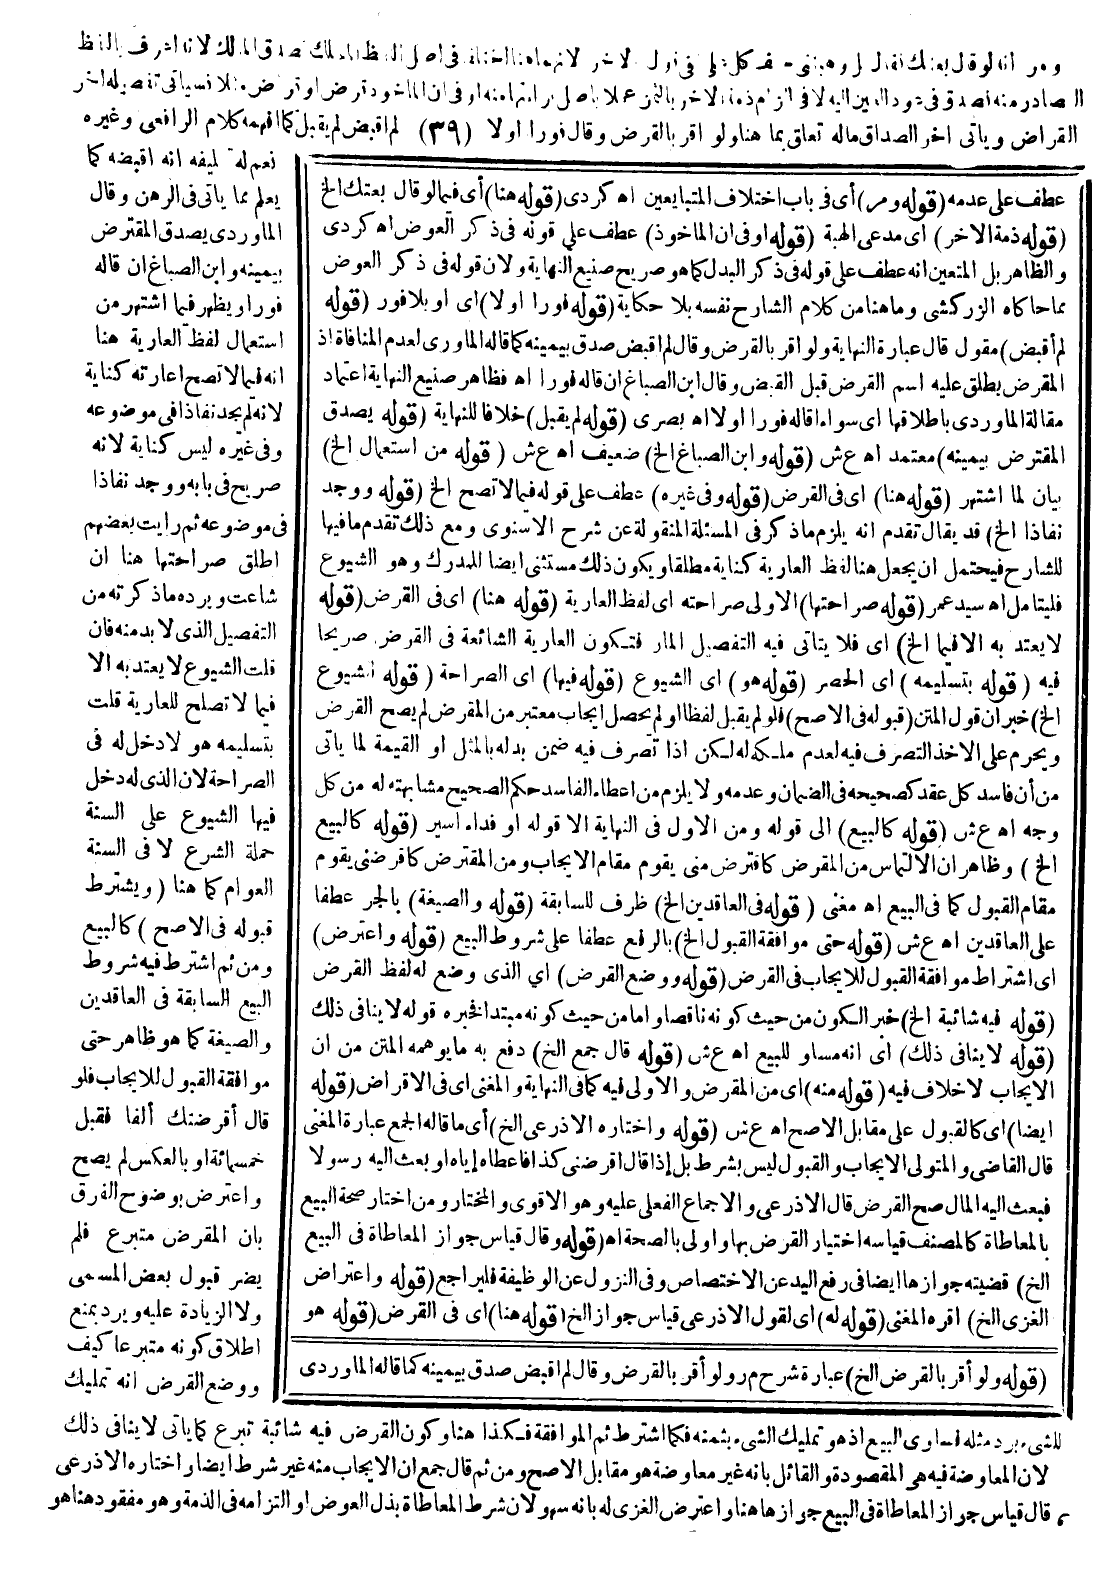 ومر انه لو قال بعتك فقال بل وهبتني
الصادر منه
القراض وياتى اخر الصداق ماله تعلق بما هنا ولو اقر بالقرض وقال فورا اولا (٣٩) لم اقبض لم يقبل كما افهمه كلام الرافعى وغيره
نعم له تحليفه انه اقبضه كما
يعلم مما ياتى فى الرهن وقال
الماوردى يصدق المقترض
بيمينه وابن الصباغ ان قاله
فورا ويظهر فيما اشتهر من
استعمال لفظ العارية هنا
انه فيما لا تصح اعارته كناية
لانه لم يجد نفاذا فى موضوعه
وفى غيره ليس كناية لانه
صريح فى بابه ووجد نفاذا
فى موضوعه ثم رايت بعضهم
اطلق صراحتها هنا ان
شاعت ويرده ماذكرته من
التفصيل الذى لا بد منه فان
قلت الشيوع لا يعتد به الا
فيما لا تصلح للعارية قلت
بتسليمه هو لا دخل له فى
الصراحة لان الذى له دخل
فيها الشيوع على السنة
حملة الشرع لا فى السنة
العوام كما هنا (ويشترط
قبوله فى الاصح) كالبيع
ومن ثم اشترط فيه شروط
البيع السابقة فى العاقدين
والصيغة كما هو ظاهر حتى
موافقة القبول للايجاب فلو
قال أقرضتك ألفا فقبل
خمسمائة او بالعكس لم يصح
واعترض بوضوح الفرق
بان المقرض متبرع فلم
يضر قبول بعض المسمى
ولا الزيادة عليه ويرد بمنع
اطلاق كونه متبرعا كيف
ووضع القرض انه تمليك
عطف على عدمه (قوله ومر) أى فى باب اختلاف المتبايعين اه كردى (قوله هنا) أى فيما لو قال بعتك الخ
(قوله ذمة الاخر) اى مدعى الهبة (قوله او فى ان الماخوذ) عطف على قوله فى ذكر العوض اه كردى
والظاهر بل المتعين انه عطف على قوله فى ذكر البدل كما هو صريح صنيع النهاية ولان قوله فى ذكر العوض
مما حاكاه الزركشى وما هنا من كلام الشارح نفسه بلا حكاية (قوله فورا اولا) اى او بلا فور (قوله
لم أقبض) مقول قال عبارة النهاية ولو اقر بالقرض وقال لم اقبض صدق بيمينه كما قاله الماوردى لعدم المنافاة اذ
القرض يطلق عليه اسم القرض قبل القبض وقال ابن الصباغ ان قاله فورا اه فظاهر صنيع النهاية اعتماد
مقالة الماوردى باطلاقها اى سواء اقاله فورا اولا اه بصرى (قوله لم يقبل) خلافا للنهاية (قوله يصدق
المقترض بيمينه) معتمد اه ع ش (قوله وابن الصباغ الخ) ضعيف اه ع ش (قوله من استعمال الخ)
بيان لما اشتهر (قوله هنا) اى فى القرض (قوله وفى غيره) عطف على قوله فيما لا تصح الخ (قوله ووجد
نفاذا الخ) قد يقال تقدم انه يلزم ما ذكر فى المسئلة المنقولة عن شرح الاسنوى ومع ذلك تقدم ما فيها
للشارح فيحتمل ان يجعل هنا لفظ العارية كناية مطلقا ويكون ذلك مستثنى ايضا للمدرك وهو الشيوع
فليتامل اه سيد عمر (قوله صراحتها) الاولى صراحته اى لفظ العارية (قوله هنا) اى فى القرض (قوله
لا يعتد به الا فيما الخ) اى فلا يتاتى فيه التفصيل المار فتكون العارية الشائعة فى القرض صريحا
فيه (قوله بتسليمه) اى الحصر (قوله هو) اى الشيوع (قوله فيها) اى الصراحة (قوله الشيوع
الخ) خبر ان قول المتن (قبوله فى الاصح) فلو لم يقبل لفظا او لم يحصل ايجاب معتبر من المقرض لم يصح القرض
ويحرم على الاخذ التصرف فيه لعدم ملكه له لكن اذا تصرف فيه ضمن بدله بالمثل او القيمة لما ياتى
من أن فاسد كل عقد كصحيحه فى الضمان وعدمه ولا يلزم من اعطاء الفاسد حكم الصحيح مشابهته له من كل
وجه اه ع ش (قوله كالبيع) الى قوله ومن الاول فى النهاية الا قوله او فداء اسير (قوله كالبيع
الخ) وظاهر ان الالتماس من المقرض كاقترض منى يقوم مقام الايجاب ومن المقترض كاقرضنى يقوم
مقام القبول كما فى البيع اه مغنى (قوله فى العاقدين الخ) ظرف للسابقة (قوله والصيغة) بالجر عطفا
على العاقدين اه ع ش (قوله حتى موافقة القبول الخ) بالرفع عطفا على شروط البيع (قوله واعترض)
اى اشتراط موافقة القبول للايجاب فى القرض (قوله ووضع القرض) اي الذى وضع له لفظ القرض
(قوله فيه شائبة الخ) خبر الكون من حيث كونه ناقصا واما من حيث كونه مبتدا فخبره قوله لا ينافى ذلك
(قوله لا ينافى ذلك) اى انه مساو للبيع اه ع ش (قوله قال جمع الخ) دفع به ما يوهمه المتن من ان
الايجاب لا خلاف فيه (قوله منه) اى من المقرض والاولى فيه كما فى النهاية والمغنى اى فى الاقراض (قوله
ايضا) اى كالقبول على مقابل الاصح اه ع ش (قوله واختاره الاذرعى الخ) أى ما قاله الجمع عبارة المغنى
قال القاضى والمتولى الايجاب والقبول ليس بشرط بل إذا قال اقرضنى كذا فاعطاه إياه او بعث اليه رسولا
فبعث اليه المال صح القرض قال الاذرعى والاجماع الفعلى عليه وهو الاقوى والمختار ومن اختار صحة البيع
بالمعاطاة كالمصنف قياسه اختيار القرض بها واولى بالصحة اه (قوله وقال قياس جواز المعاطاة فى البيع
الخ) قضيته جوازها ايضا فى رفع اليد عن الاختصاص وفى النزول عن الوظيفة فليراجع (قوله واعتراض
الغزى الخ) اقره المغنى (قوله له) اى لقول الاذرعى قياس جواز الخ (قوله هنا) اى فى القرض (قوله هو
(قوله ولو أقر بالقرض الخ) عبارة شرح م ر ولو أقر بالقرض وقال لم اقبض صدق بيمينه كما قاله الماوردى
للشىء برد مثله فساوى البيع اذ هو تمليك الشىء بثمنه فكما اشترط ثم الموافقة فكذا هنا وكون القرض فيه شائبة تبرع كما ياتى لا ينافى ذلك
لان المعاوضة فيه هى المقصودة والقائل بانه غير معاوضة هو مقابل الاصح ومن ثم قال جمع ان الايجاب منه غير شرط ايضا واختاره الاذرعى
وقال قياس جواز المعاطاة فى البيع جوازها هنا واعترض الغزى له بانه سهو لان شرط المعاطاة بذل العوض او التزامه فى الذمة وهو مفقود هنا هو